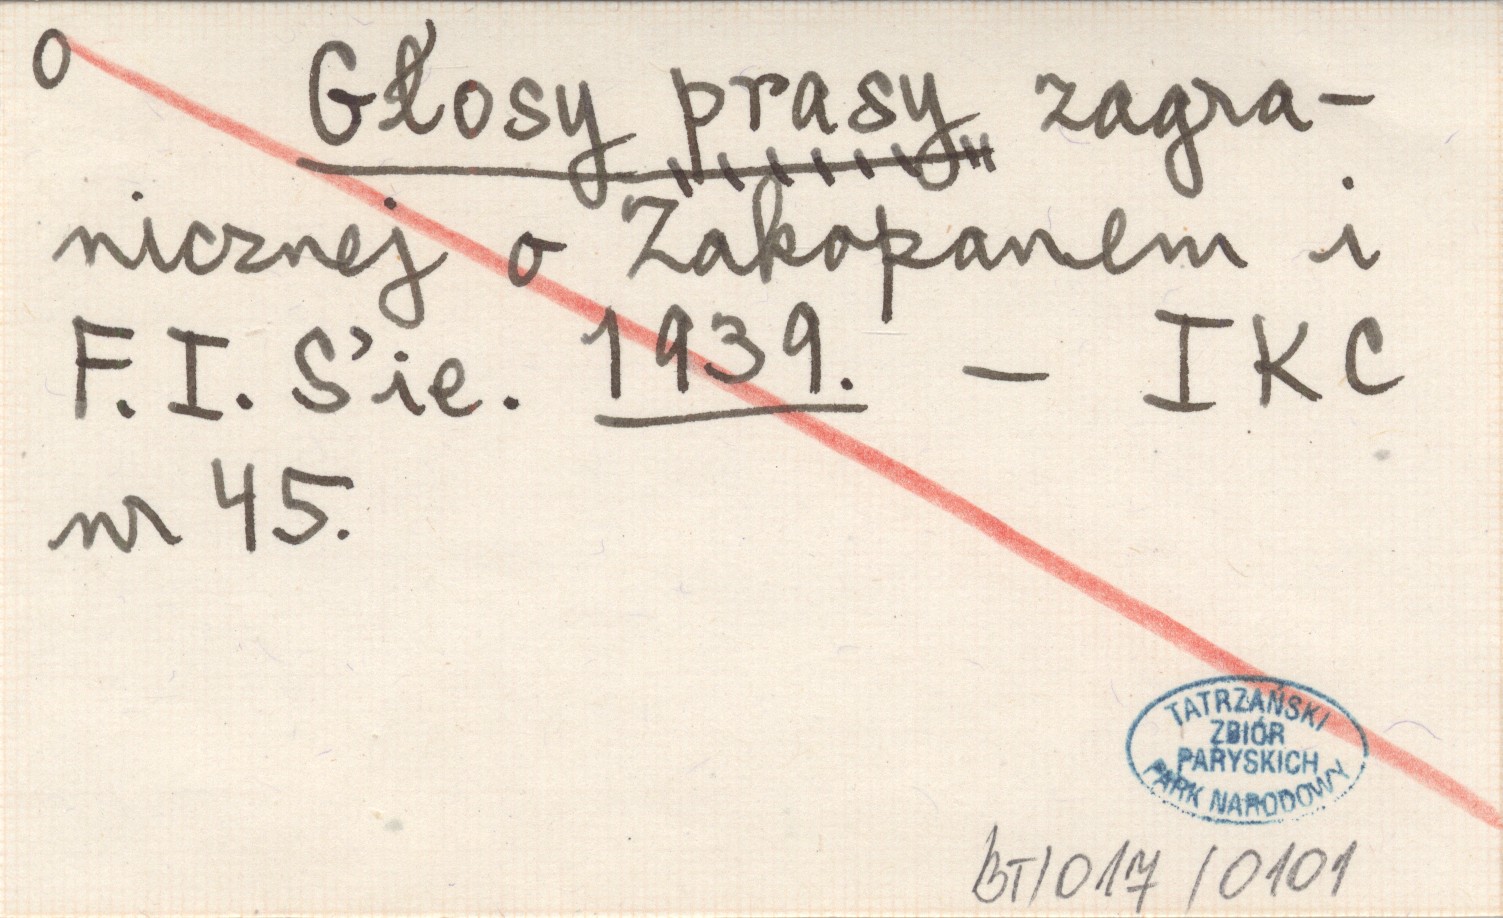 o Głosy prasy zagra-
nicznej o Zakopanem i
F. I. S'ie. 1939. — IKC
nr 45.
TATRZAŃSKI
ZBIÓR
PARYSKICH
PARK NARODOWY
BT/017/0101